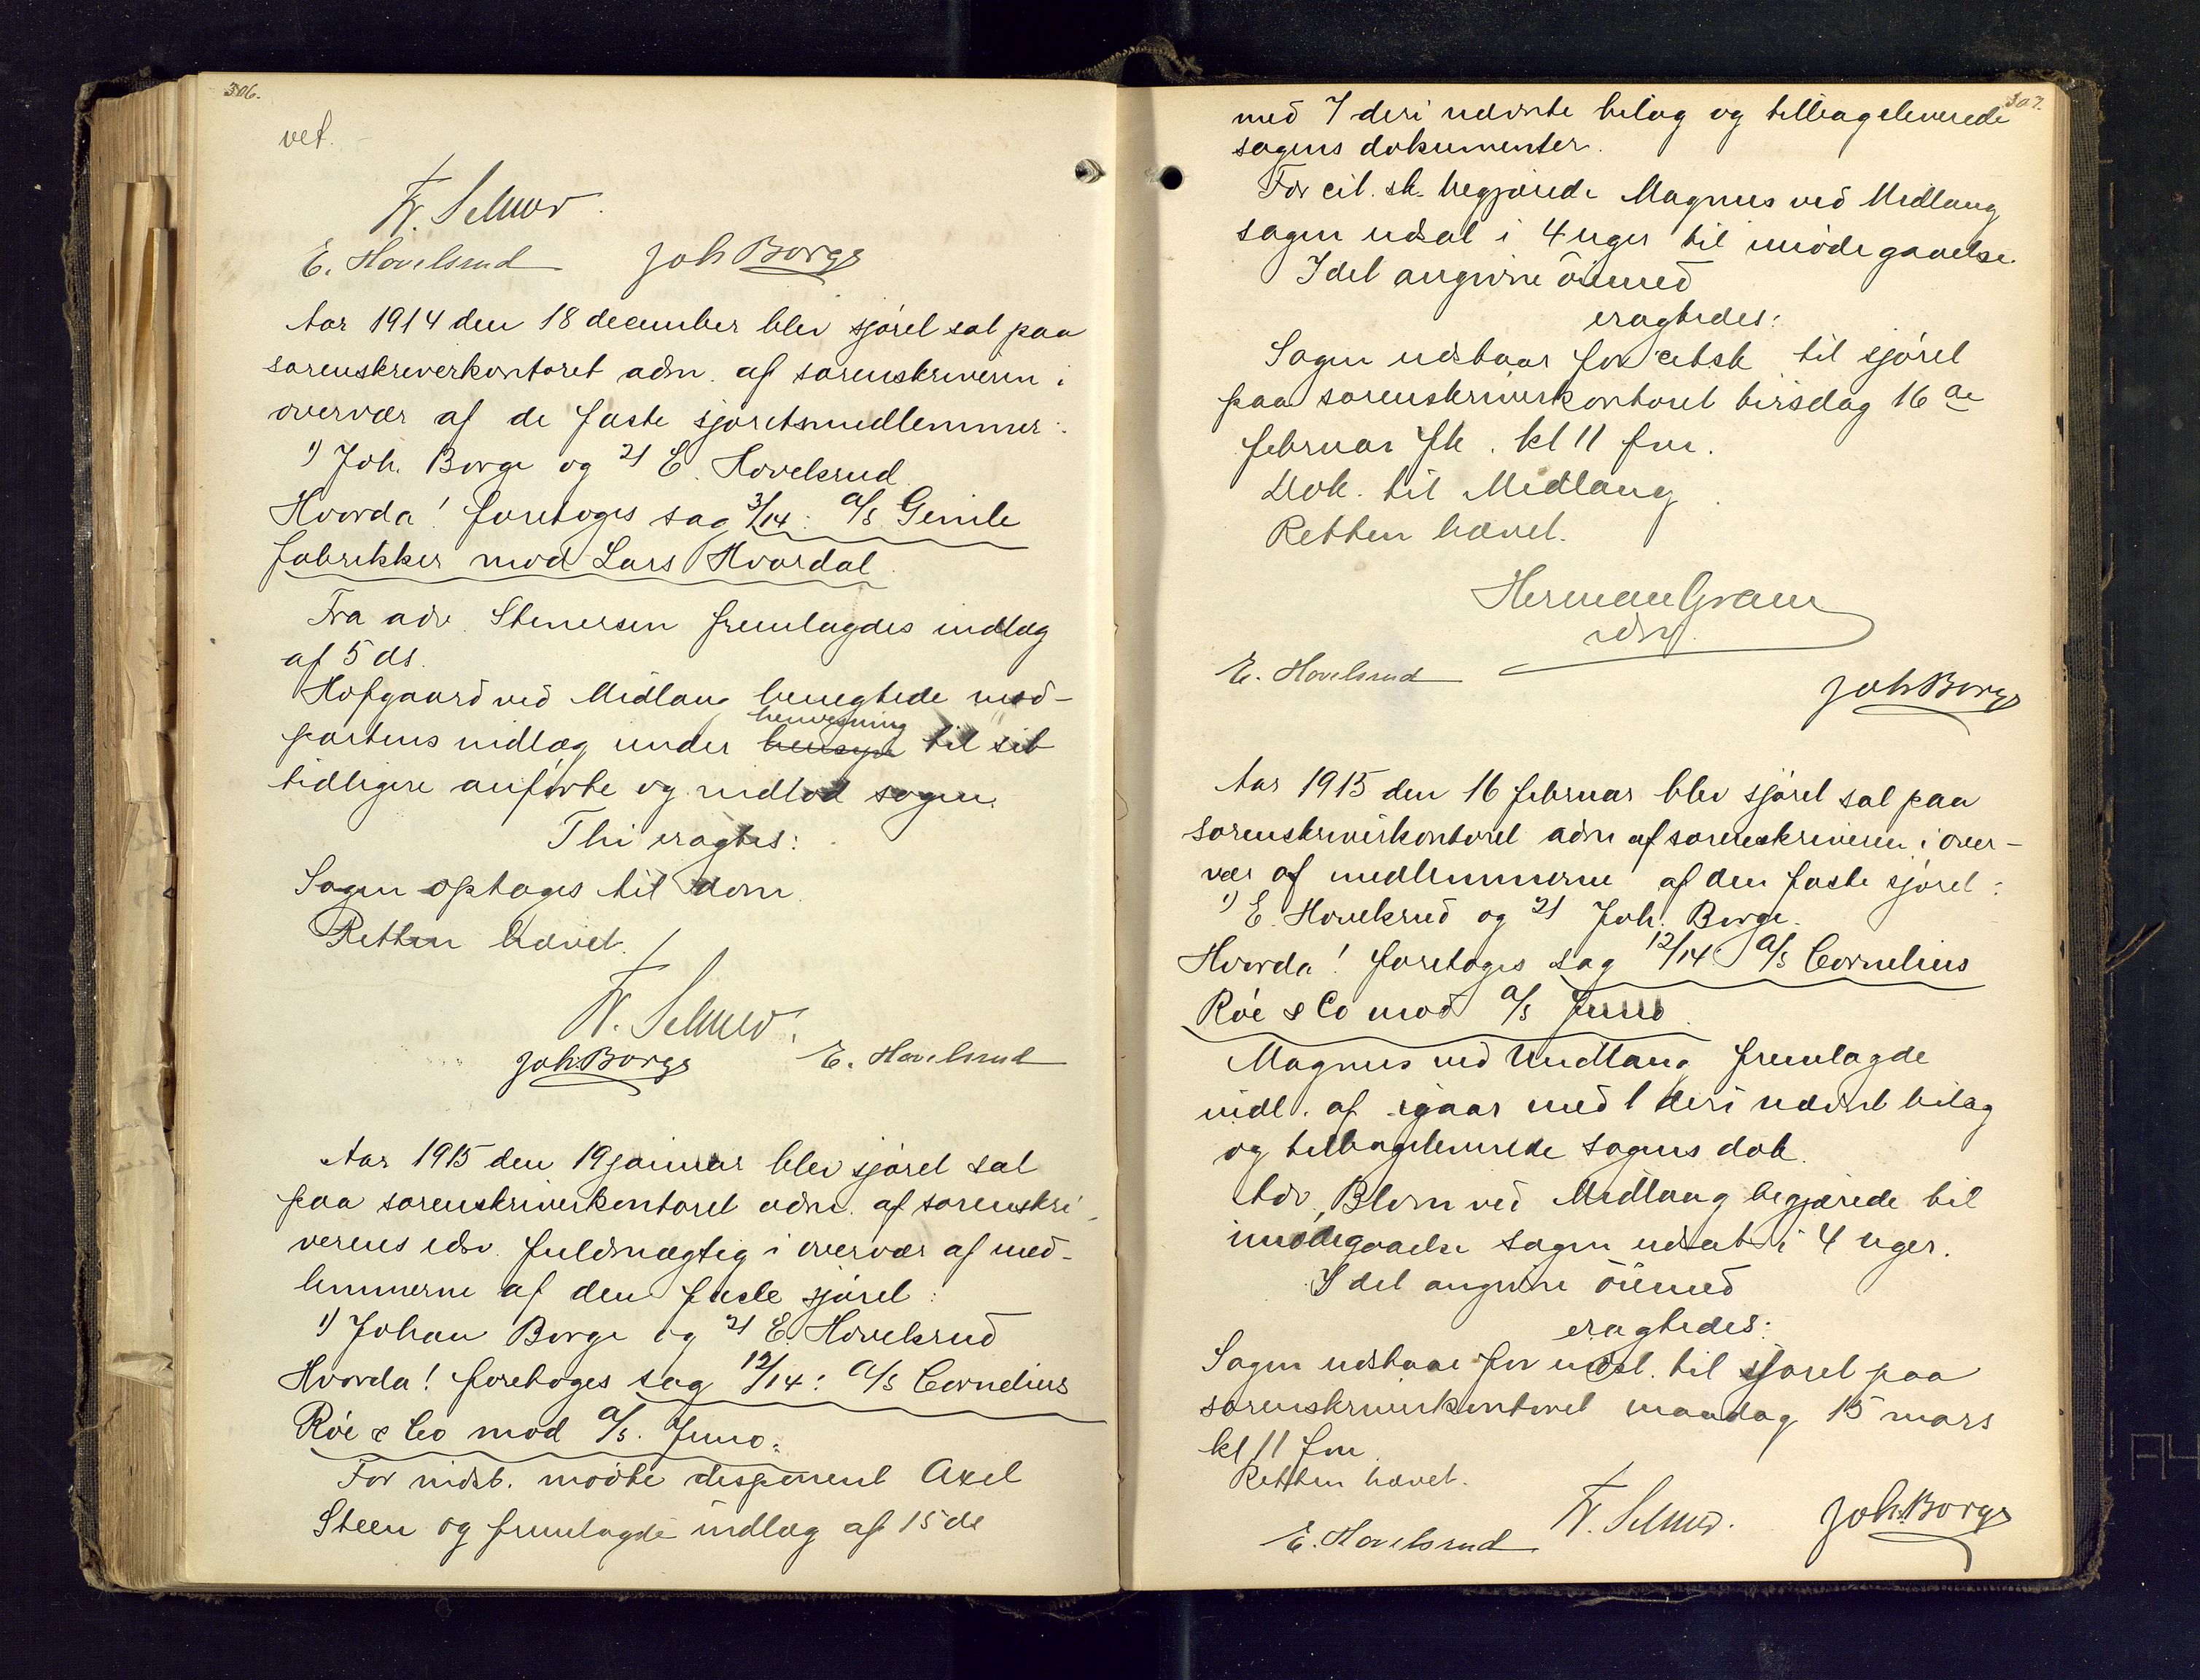 306.
vet.
Fr. Selmer.
E. Hovelsrud Joh Borge
Aar 1914 den 18 december blev sjøret sat paa
sorenskriverkontoret adm. af sorenskriveren i
overvær af de faste sjøretsmedlemmer:
1) Joh. Borge og 2) E. Hovelsrud
Hvorda! foretoges sag 3/14: A/S Gimle
fabrikker mod Lars Hvardal
Fra adv. Stenersen fremlagdes indlæg
af 5 ds.
Hofgaard ved Midlang benegtede mod-
henvisning
partens indlæg under hensyn til sit
tidligere anførte og indlod sagen.
Thi eragtes:
Sagen optages til dom.
Retten hævet.
Fr. Selmer.
Joh. Borge E. Hovelsrud
Aar 1915 den 19 januar blev sjøret sat
paa sorenskriverkontoret adm. af sorenskri-
verens edsv. fuldmægtig i overvær af med-
lemmerne af den faste sjøret:
1) Johan Borge og 2) E. Hovelsrud
Hvorda! foretoges sag 12/14: A/S Cornelius
Röe & Co mod A/S. Juno.
For indst. mødte disponent Axel
Steen og fremlagde indlæg af 15 ds
307.
med 7 deri nævnte bilag og tilbageleverede
sagens dokumenter.
For cit. sk. begjærede Magnus ved Midlang
sagen udsat i 4 uger til imødegaaelse.
I det angivne øiemed
eragtedes:
Sagen udstaar for citsk til sjøret
paa sorenskriverkontoret tirsdag 16de
februar fk. kl 11 fm.
Dok. til Midlang
Retten hævet.
Herman Gram
edsv.
E. Hovelsrud
Joh Borge
Aar 1915 den 16 februar blev sjøret sat paa
sorenskriverkontoret adm af sorenskriveren i over-
vær af medlemmerne af den faste sjøret:
1) E. Hovelsrud og 2) Joh. Borge.
Hvorda! foretoges sag 12/14 A/S Cornelius
Röe & Co mod A/S Juno
Magnus ved Midlang fremlagde
indl. af igaar med 1 deri nævnt bilag
og tilbageleverede sagens dok.
Adv. Blom ved Midlang begjærede til
imødegaaelse sagen udsat i 4 uger.
I det angivne øiemed
eragtedes:
Sagen udstaar for indst. til sjøret paa
sorenskriverkontoret mandag 15 mars
kl 11 fm
Retten hævet.
E. Hovelsrud Fr. Selmer. Joh. Borge